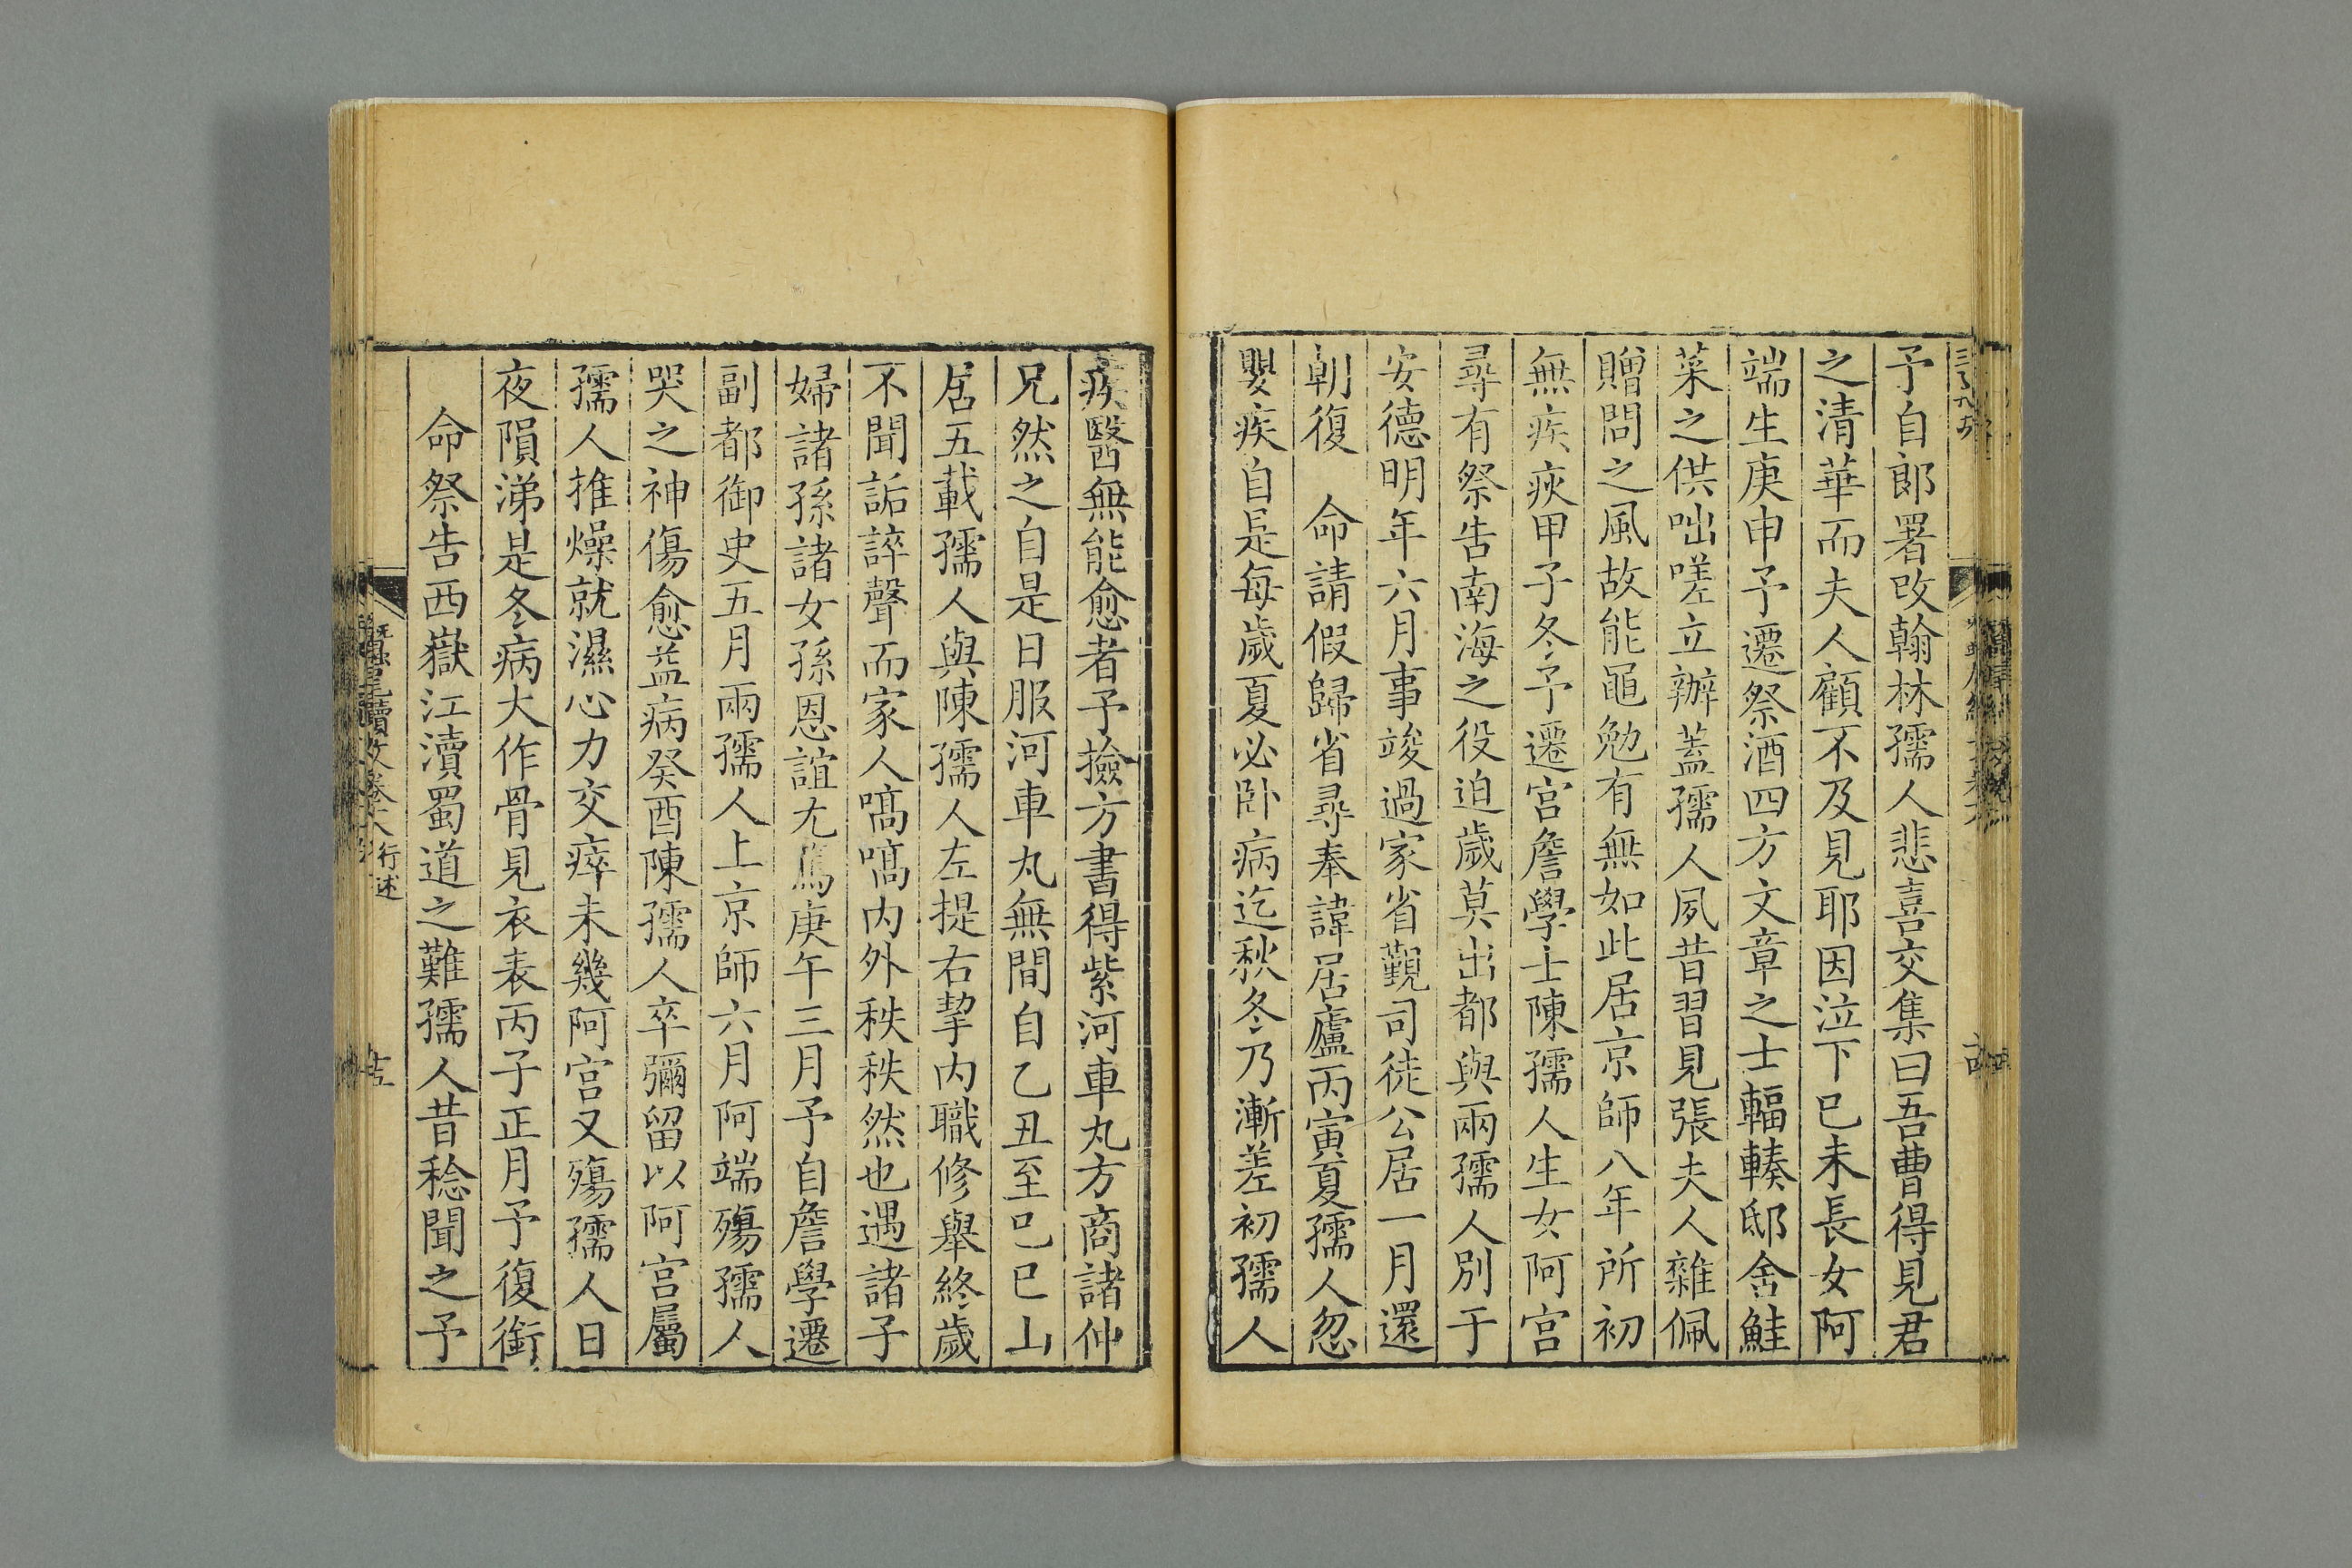 予自郎署改翰林孺人悲喜交集曰吾曹得見君
之清華而夫人顧不及見耶因泣下已未長女阿
端生庚申予遷祭酒四方文章之士輻輳邸舍鮭
菜之供咄嗟立辦蓋孺人夙昔習見張夫人雜佩
贈問之風故能黽勉有無如此居京師八年所初
無疾疢甲子冬予遷宮詹學士陳孺人生女阿宮
尋有祭告南海之役迫歲莫出都與兩孺人別于
安德明年六月事竣過家省覲司徒公居一月還
朝復　命請假歸省尋奉諱居廬丙寅夏孺人忽
嬰疾自是每歲夏必卧病迄秋冬乃漸差初孺人
疾醫無能愈者予撿方書得紫河車丸方商諸仲
兄然之自是日服河車丸無間自乙丑至己巳山
居五載孺人與陳孺人左提右挈内職修舉終歲
不聞詬誶聲而家人嗃嗃内外秩秩然也遇諸子
婦諸孫諸女孫恩誼尤篤庚午三月予自詹學遷
副都御史五月兩孺人上京師六月阿端殤孺人
哭之神傷愈益病癸酉陳孺人卒彌留以阿宮屬
孺人推燥就濕心力交瘁未幾阿宮又殤孺人日
夜隕涕是冬病大作骨見衣表丙子正月予復銜
命祭告西嶽江瀆蜀道之難孺人昔稔聞之予
蠶尾續文卷 行述